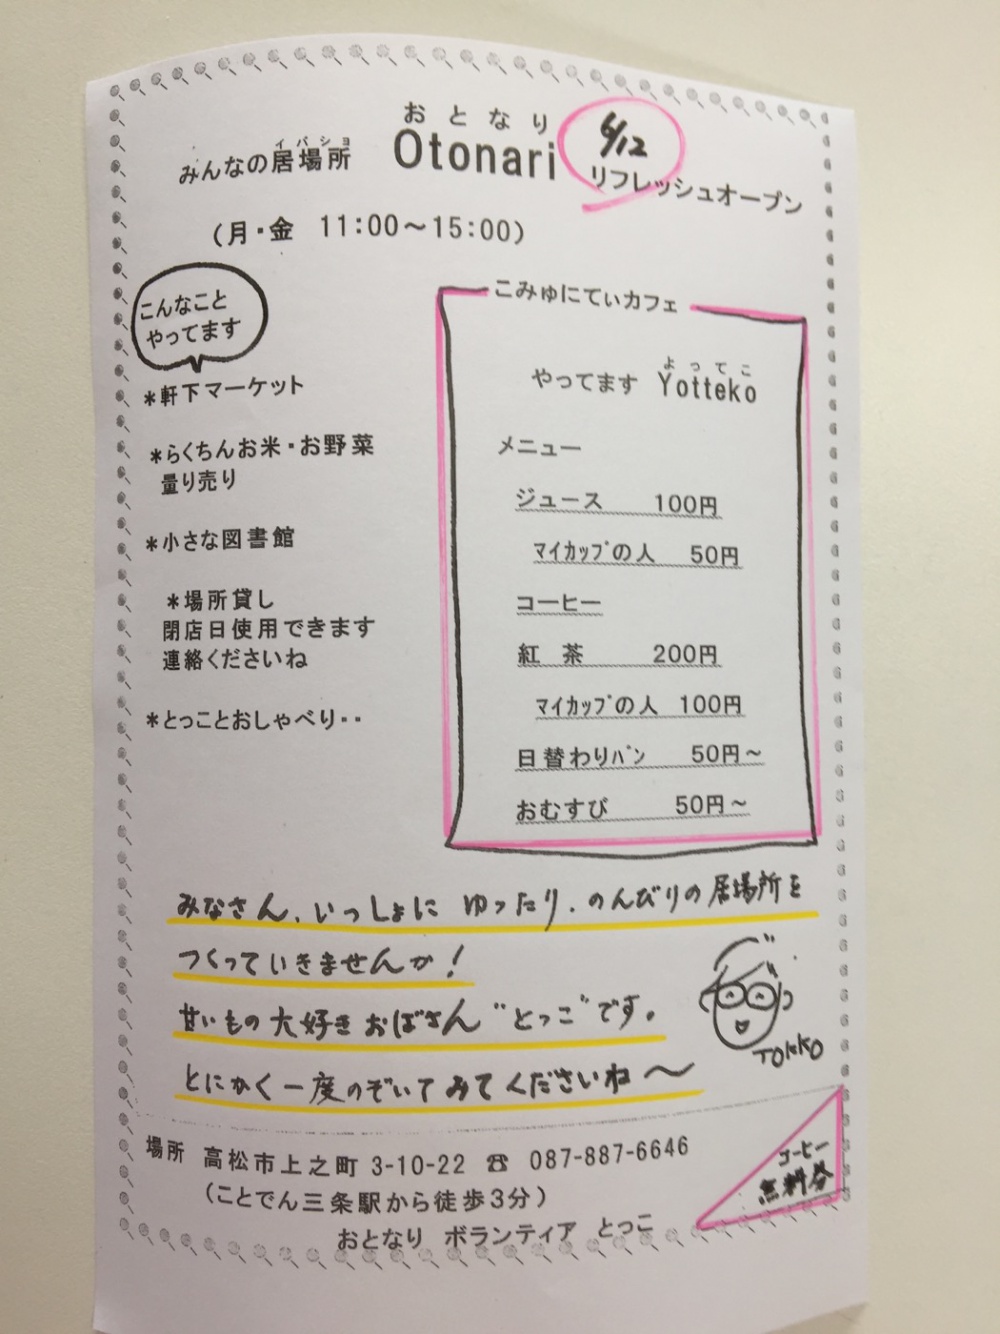 おとなり
イバショ
みんなの居場所 Otonari 6/12
リフレッシュオープン
（月・金 11:00～15:00）
こんなこと
やってます
＊軒下マーケット
＊らくちんお米・お野菜
量り売り
＊小さな図書館
＊場所貸し
閉店日使用できます
連絡くださいね
＊とっことおしゃべり・・
こみゅにてぃカフェ
よってこ
やってます Yotteko
メニュー
ジュース 100円
ﾏｲｶｯﾌﾟの人 50円
コーヒー
紅 茶 200円
ﾏｲｶｯﾌﾟの人 100円
日替わりﾊﾟﾝ 50円～
おむすび 50円～
みなさん、いっしょに ゆったり、のんびりの居場所を
つくっていきませんか！
甘いもの大好きおばさん“とっこ”です。
とにかく一度のぞいてみてくださいね～
TOKKO
場所 高松市上之町 3-10-22 ☎ 087-887-6646
（ことでん三条駅から徒歩3分）
おとなり ボランティア とっこ
コーヒー
無料券